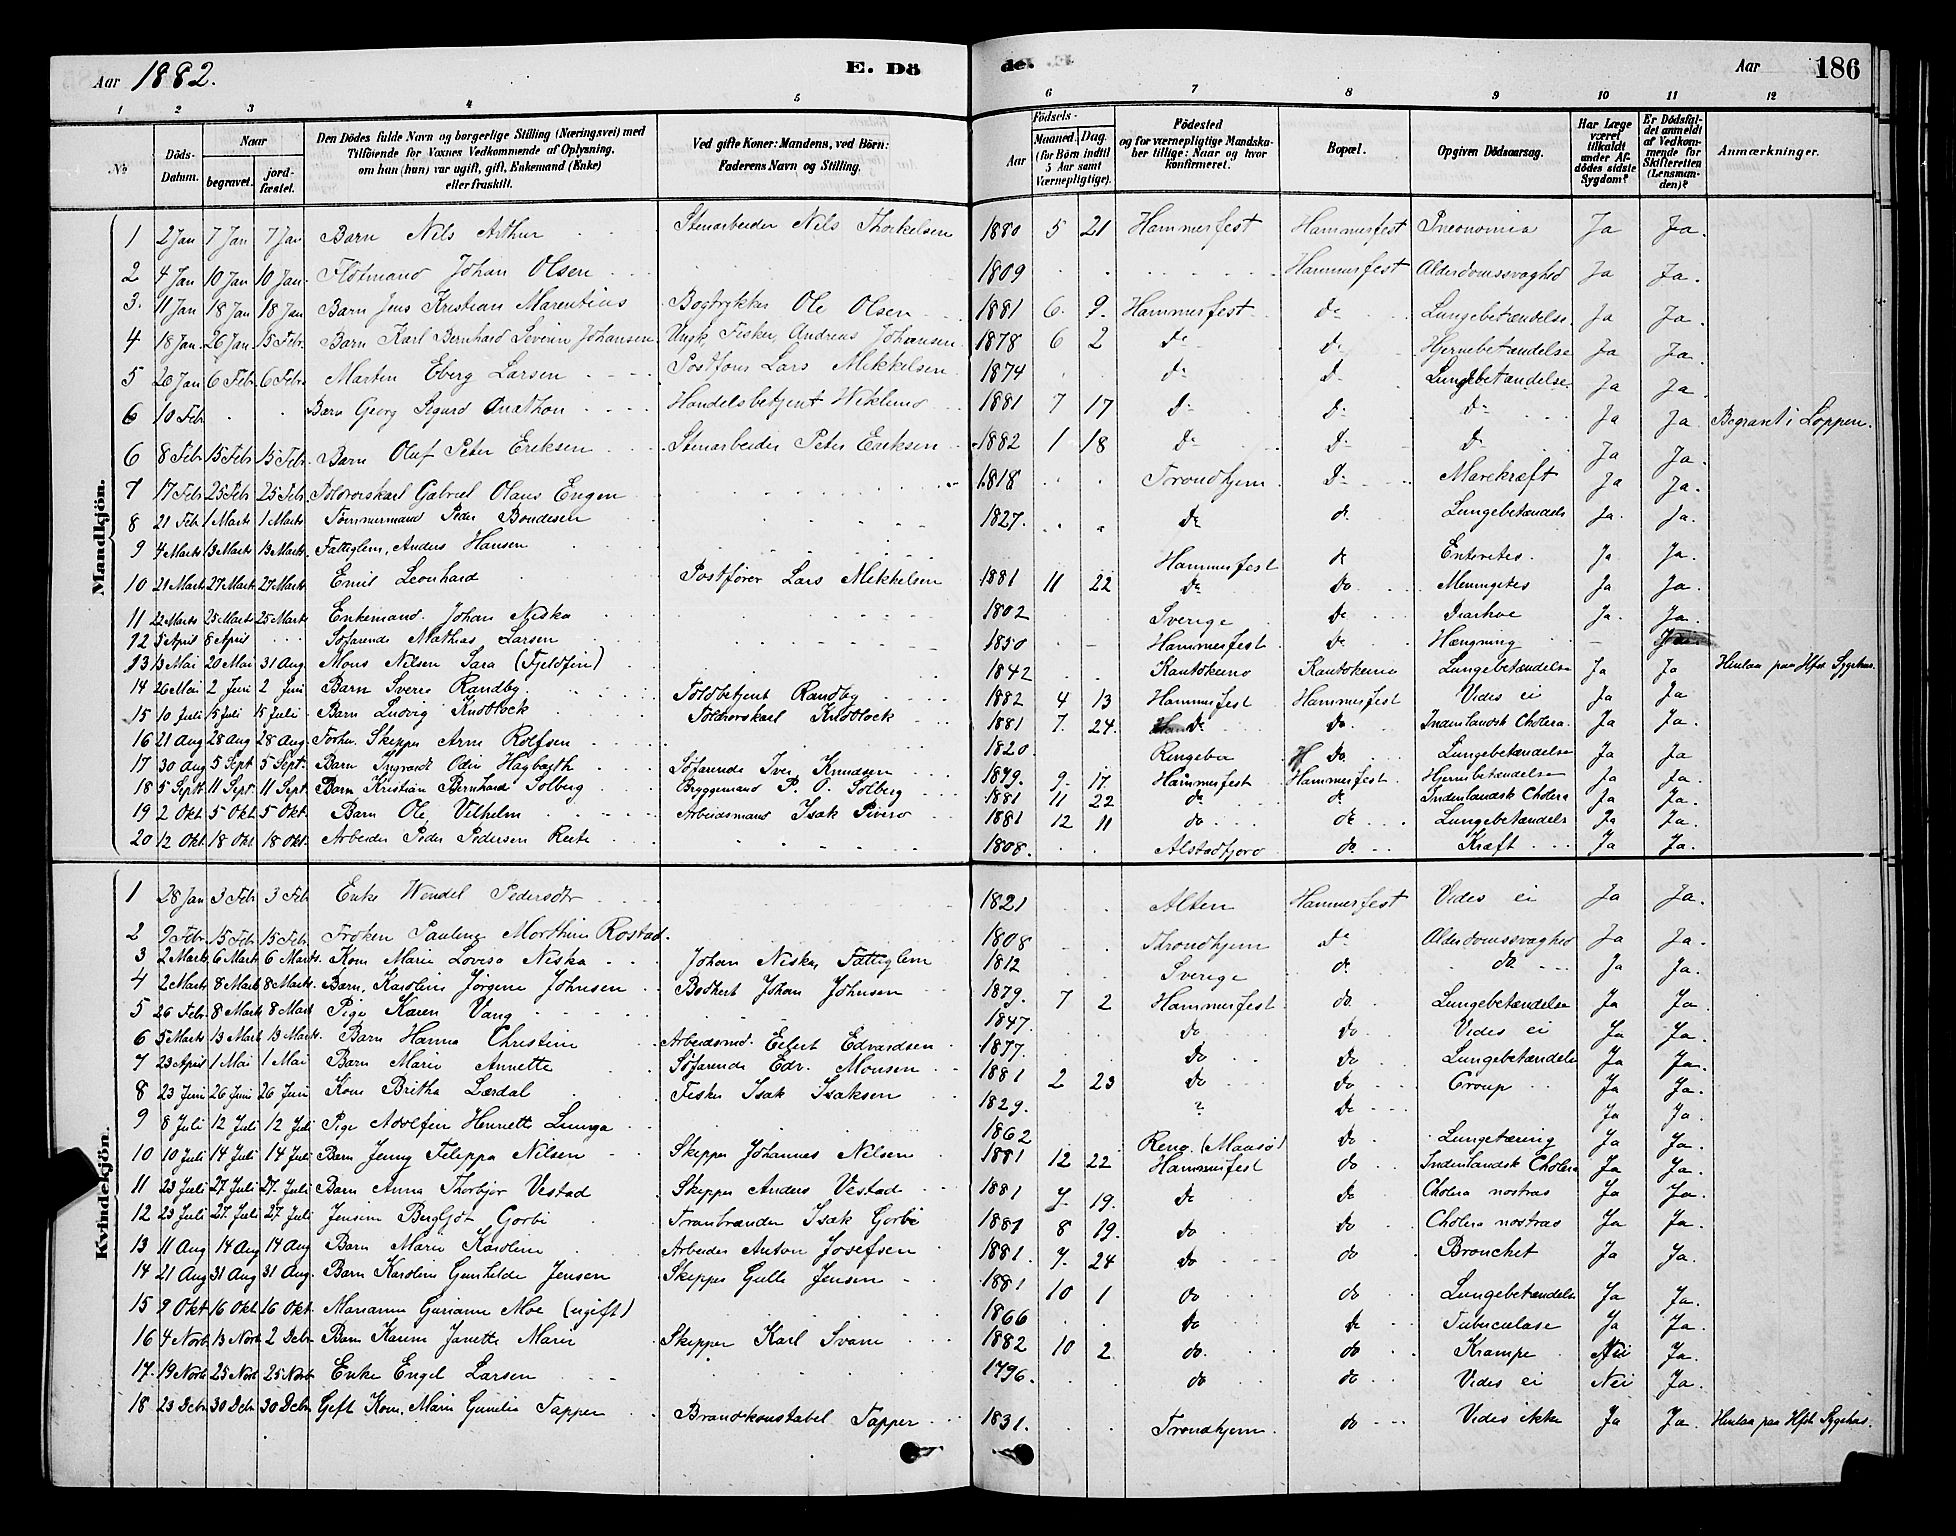 Aar 1882. E. Döde. Aar 186
1 2 3 4 5 6 7 8 9 10 11 12
No
Döds-Datum.
Naar
begravet.
jord-fæstet.
Den Dödes fulde Navn og borgerlige Stilling (Næringsvei) med
Tilföiende for Voxnes Vedkommende af Oplysning,
om han (hun) var ugift, gift, Enkemand (Enke)
eller fraskilt.
Ved gifte Koner: Mandens, ved Börn:
Faderens Navn og Stilling.
Födsels-
Aar
Maaned. Dag.
(for Börn indtil
5 Aar samt
Værnepligtige).
Födested
og for værnepligtige Mandska-
ber tillige: Naar og hvor
konfirmeret.
Bopæl.
Opgiven Dödsaarsag.
Har Læge
været
tilkaldt
under Af-
dödes sidste
Sygdom?
Er Dödsfal-
det anmeldt
af Vedkom-
mende for
Skifteretten
(Lensman-
den)?
Anmærkninger.
Mandkjön.
1 2 Jan 7 Jan 7 Jan Barn Nils Arthur Stenarbeider Nils Thorkelsen 1880 5 21 Hammerfest Hammerfest Pneonomia Ja Ja.
2 4 Jan 10 Jan 10 Jan Flötmand Johan Olsen 1809 Hammerfest Alderdomssvaghed Ja Ja.
3. 11 Jan 18 Jan 18 Jan Barn Jens Kristian Marentius Bogtrykker Ole Olsen 1881 6. 9. Hammerfest do Lungebetændelse. Ja Ja.
4 18 Jan. 26 Jan. 15 Febr. Barn Karl Bernhard Severin Johansen Ungk. Fisker Andreas Johansen 1878 6 2 do do Hjernebetændelse Ja Ja.
5 26 Jan 6 Febr. 6 Febr. Martin Eberg Larsen Postförer Lars Mikkelsen 1874 do do Lungebetændelse Ja Ja.
6 10 Feb. Barn Georg Sigurd Anathon Handelsbetjent Wiklund 1881 7 17 do do do Ja Ja Begravet i Loppen.
6 8 Feb 15 Feb 15 Feb. Barn Oluf Peter Eriksen Stenarbeider Peter Eriksen 1882 1 18 do do do Ja Ja.
7 17 Feb 25 Feb 25 Feb Toldrorskarl Gabriel Olaus Engen 1818 Trondhjem do Marekræft Ja Ja.
8 21 Feb. 1 Marts 1 Marts Tömmermand Peder Bondesen 1827. do do Lungebetændels Ja. Ja.
9 4 Marts 13 Marts 13 Marts Fattiglem, Anders Hansen Hammerfest do Enteretes. Ja Ja.
10 21 Marts 27 Marts 27 Marts Emil Leonhard Postförer Lars Mikkelsen 1881 11 22 do do Meningetes Ja Ja.
11 22 Marts 25 Marts 25 Marts Enkemand. Johan Niska 1802 Sverige do Diarhoe Ja. Ja.
12 5 April 8 April Söfarende Mathias Larsen 1850 Hammerfest do Hængning -
13 13 Mai 20 Mai 31 Aug. Mons Nilsen Sara (Fjeldfin) 1842 Kautokeino Kautokeino Lungebetændelse Ja Ja Henlaa paa Hfst Sygehus.
14 26 Mai 2 Juni 2 Juni Barn Sverre Randby Toldbetjent Randby 1882 4 13 Hammerfest Hammerfest Vides ei Ja Ja
15 10 Juli 15 Juli 15 Juli Barn Ludvig Knoblock Toldrorskarl Knoblock 1881 7. 24. do do. Indenlandsk Cholera. Ja Ja.
16 21 Aug 28 Aug 28 Aug Forhv. Skipper Arne Rolfsen 1820. Ringebu do. Lungebetændelse Ja Ja
17 30 Aug 5 Sept 5 Sept. Barn Ingvald Odin Hagbarth Söfarende Iver Knudsen 1879. 9. 17. Hammerfest Hammerfest. Hjernebetændelse Ja Ja.
18 5 Sept 11 Sept. 11 Sept. Barn Kristian Bernhard Solberg Bryggemand P. O. Solberg 1881 11 22 do do Indenlandsk Cholera Ja Ja.
19 2 Okt 5 Okt 5 Okt. Barn Ole Vilhelm Arbeidsmand Isak Pivero 1881 12 11 do do Lungebetændels Ja Ja.
20 12 Okt. 18 Okt 18 Okt. Arbeider Peder Pedersen Reite 1808. Alstadfjord do Kræft Ja Ja.
Kvindekjön.
1 28 Jan 3 Feb 3 Feb Enke Wendel Pedersdtr 1821 Alten Hammerfest Vides ei Ja Ja.
2 9 Feb. 15 Feb 15 Feb. Fröken Pauline Morthine Rostad. 1808 Throndhjem do Alderdomssvaghed Ja Ja.
3 2 Marts 6 Marts 6 Marts. Kone Marie Lovisa Niska Johan Niska, Fattiglem 1812 Sverige do do Ja Ja.
4 2 Marts 8 Marts 8 Marts. Barn, Karoline Jörgine Johnsen Bödkert Johan Johnsen 1879. 7 2 Hammerfest do. Lungebetændelse Ja Ja
5 26 Feb. 8 Marts 8 Marts Pige Karen Vang 1847. do do Vides ei Ja Ja.
6 5 Marts 13 Marts 13 Marts. Barn Hanna Christine Arbeidsmd. Eilert Edvardsen 1877. do do Lungebetændels Ja Ja.
7 23 April 1 Mai 1 Mai Barn Marie Annette Söfarende Edv. Monsen 1881 2 23 do do Croup Ja Ja.
8 23 Juni 26 Juni 26 Juni Kone Britha Lærdal Fisker Isak Isaksen 1829. ? do Ja Ja.
9 8 Juli 12 Juli 12 Juli Pige Adolfine Henriette Lunga 1862 Renö (Maasö) do Lungetæring Ja Ja.
10 10 Juli 14 Juli 14 Juli Barn Jenny Filippa Nilsen Skipper Johannes Nilsen 1881 12 22 Hammerfest do Indenlandsk Cholera Ja Ja.
11 23 Juli 27. Juli 27. Juli Barn Anna Thorbjör Vestad Skipper Anders Vestad 1881 7. 19. do do Cholera nostras Ja Ja.
12 23 Juli 27. Juli 27. Juli Jensine Bergljot Gorbi Tranbrænder Isak Gorbi 1881 8 19. do do Cholera nostras Ja Ja.
13 11 Aug 14 Aug 14 Aug Barn Marie Karoline Arbeider Anton Josefsen 1881. 7. 24 do do Bronchet Ja Ja.
14 21 Aug 31 Aug 31 Aug. Barn Karoline Gunhilde Jensen Skipper Gulle Jensen 1881 10 1 do do Lungebetændelse Ja Ja.
15 9 Okt 16 Okt 16 Okt. Marianne Guriane Moe (ugift) 1866 do do Tuberculose Ja Ja.
16 4 Novb 13 Novb 2 Debr Barn Karen Janette Marie Skipper Karl Svane 1882 10 2 do. do Krampe Nei Ja.
17. 19 Novb 25 Novb 25 Novb. Enke Engel Larsen 1796. do do Vides ei Nei Ja.
18 23 Debr 30 Debr 30 Debr. Gift Kone. Marie Gunilia Tapper Brandkonstabel Tapper 1831. Trondhjem. do Vides ikke Ja Ja. Henlaa paa Hfst. Sygehus.